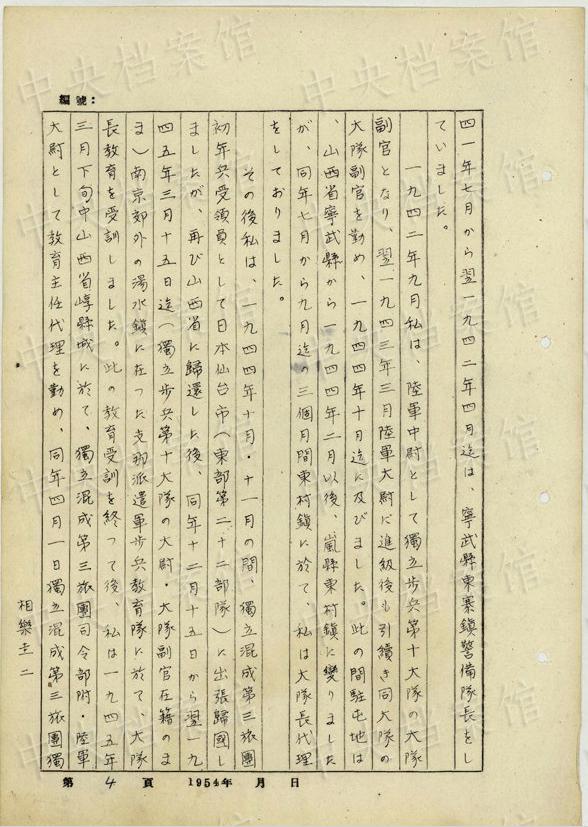 編號：
四一年七月から翌一九四二年四月迄は、寧武縣東寨鎮警備隊長をし
ていました。
一九四二年九月私は、陸軍中尉として獨立步兵第十大隊の大隊
副官となり、翌一九四三年三月陸軍大尉に進級後も引續き同大隊の
大隊副官を勤め、一九四四年十月迄に及びました。此の間駐屯地は
、山西省寧武縣から一九四四年二月以後、嵐縣東村鎮に變りました
が、同年七月から九月迄の三個月間東村鎮に於て、私は大隊長代理
をしておりました。
その後私は、一九四四年十月・十一月の間、獨立混成第三旅團
初年兵受領員として日本仙台市（東部第二十二部隊）に出張歸國し
ましたが、再び山西省に歸還した後、同年十二月十五日から翌一九
四五年三月十五日迄（獨立步兵第十大隊の大尉・大隊副官在籍のま
ま）南京郊外の湯水鎮に在つた支那派遣軍步兵教育隊に於て、大隊
長教育を受訓しました。此の教育受訓を終つて後、私は一九四五年
三月下旬中山西省崞縣城に於て、獨立混成第三旅團司令部附・陸軍
大尉として教育主任代理を勤め、同年四月一日獨立混成第三旅團獨
相樂圭二
第 4 頁 1954年 月 日
中央档案馆